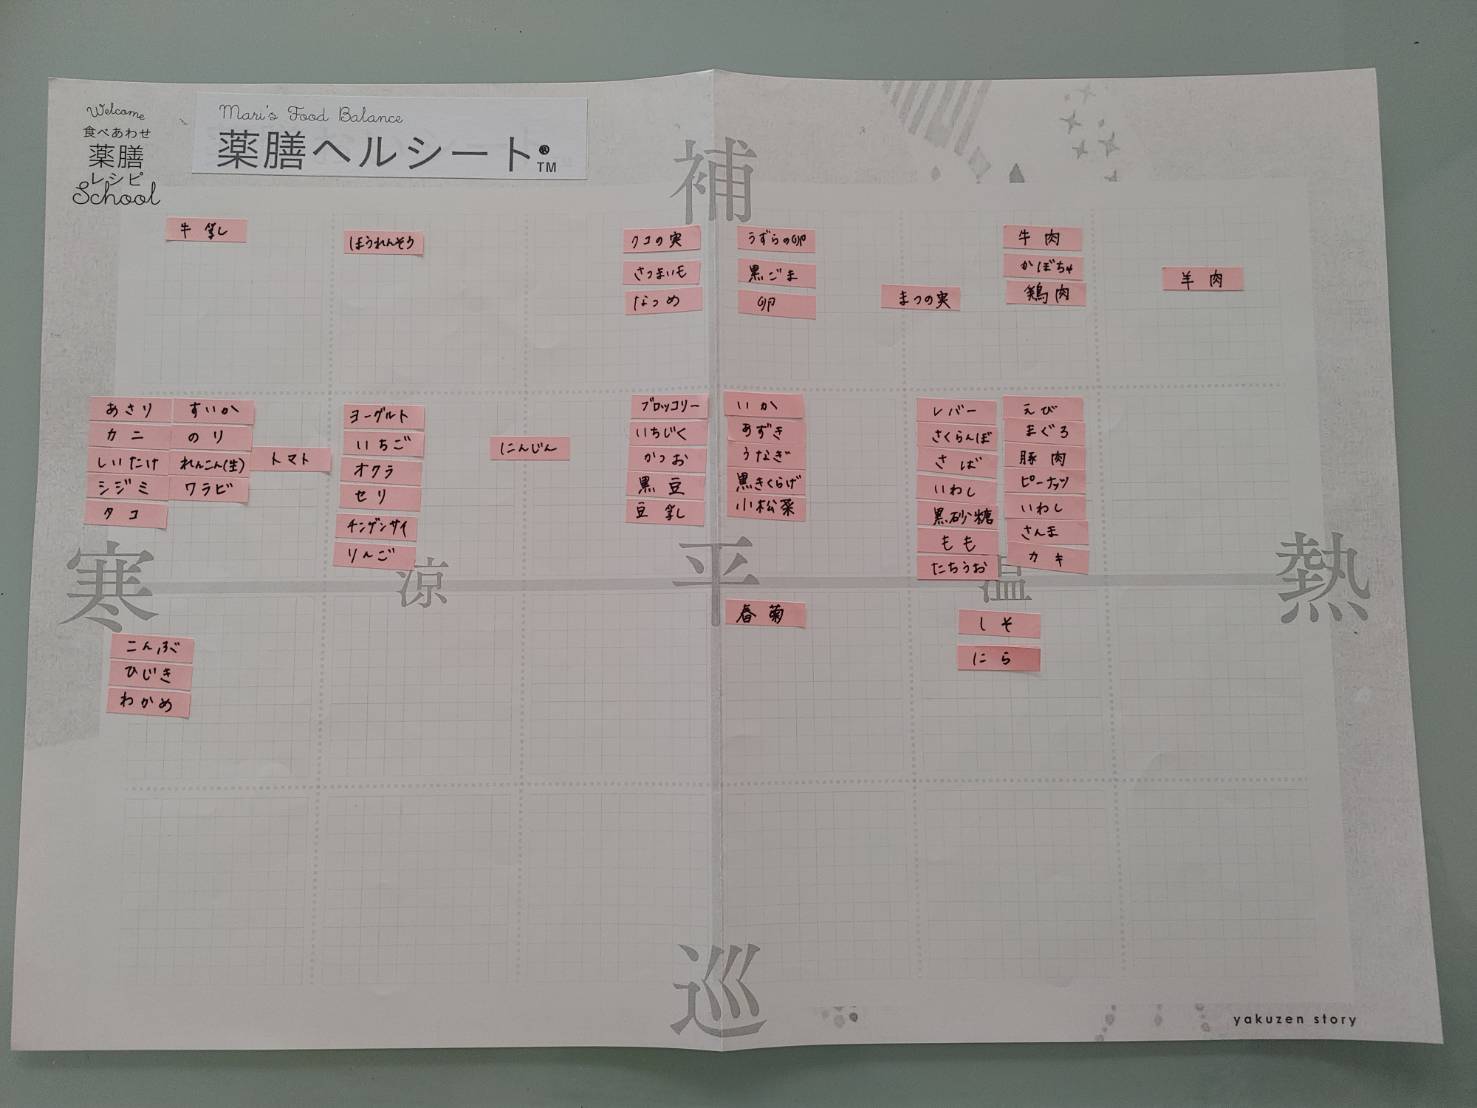 Welcome
食べあわせ
薬膳
レシピ
School
Mari's Food Balance
薬膳ヘルシート®TM
補
牛乳
ほうれんそう
クコの実
さつまいも
なつめ
うずらの卵
黒ごま
卵
まつの実
牛肉
かぼちゃ
鶏肉
羊肉
あさり
カニ
しいたけ
シジミ
タコ
すいか
のり
れんこん(生)
ワラビ
トマト
ヨーグルト
いちご
オクラ
セリ
チンゲンサイ
りんご
にんじん
ブロッコリー
いちじく
かつお
黒豆
豆乳
いか
あずき
うなぎ
黒きくらげ
小松菜
レバー
さくらんぼ
さば
いわし
黒砂糖
もも
たちうお
えび
まぐろ
豚肉
ピーナッツ
いわし
さんま
カキ
寒
涼
平
温
熱
こんぶ
ひじき
わかめ
春菊
しそ
にら
巡
yakuzen story